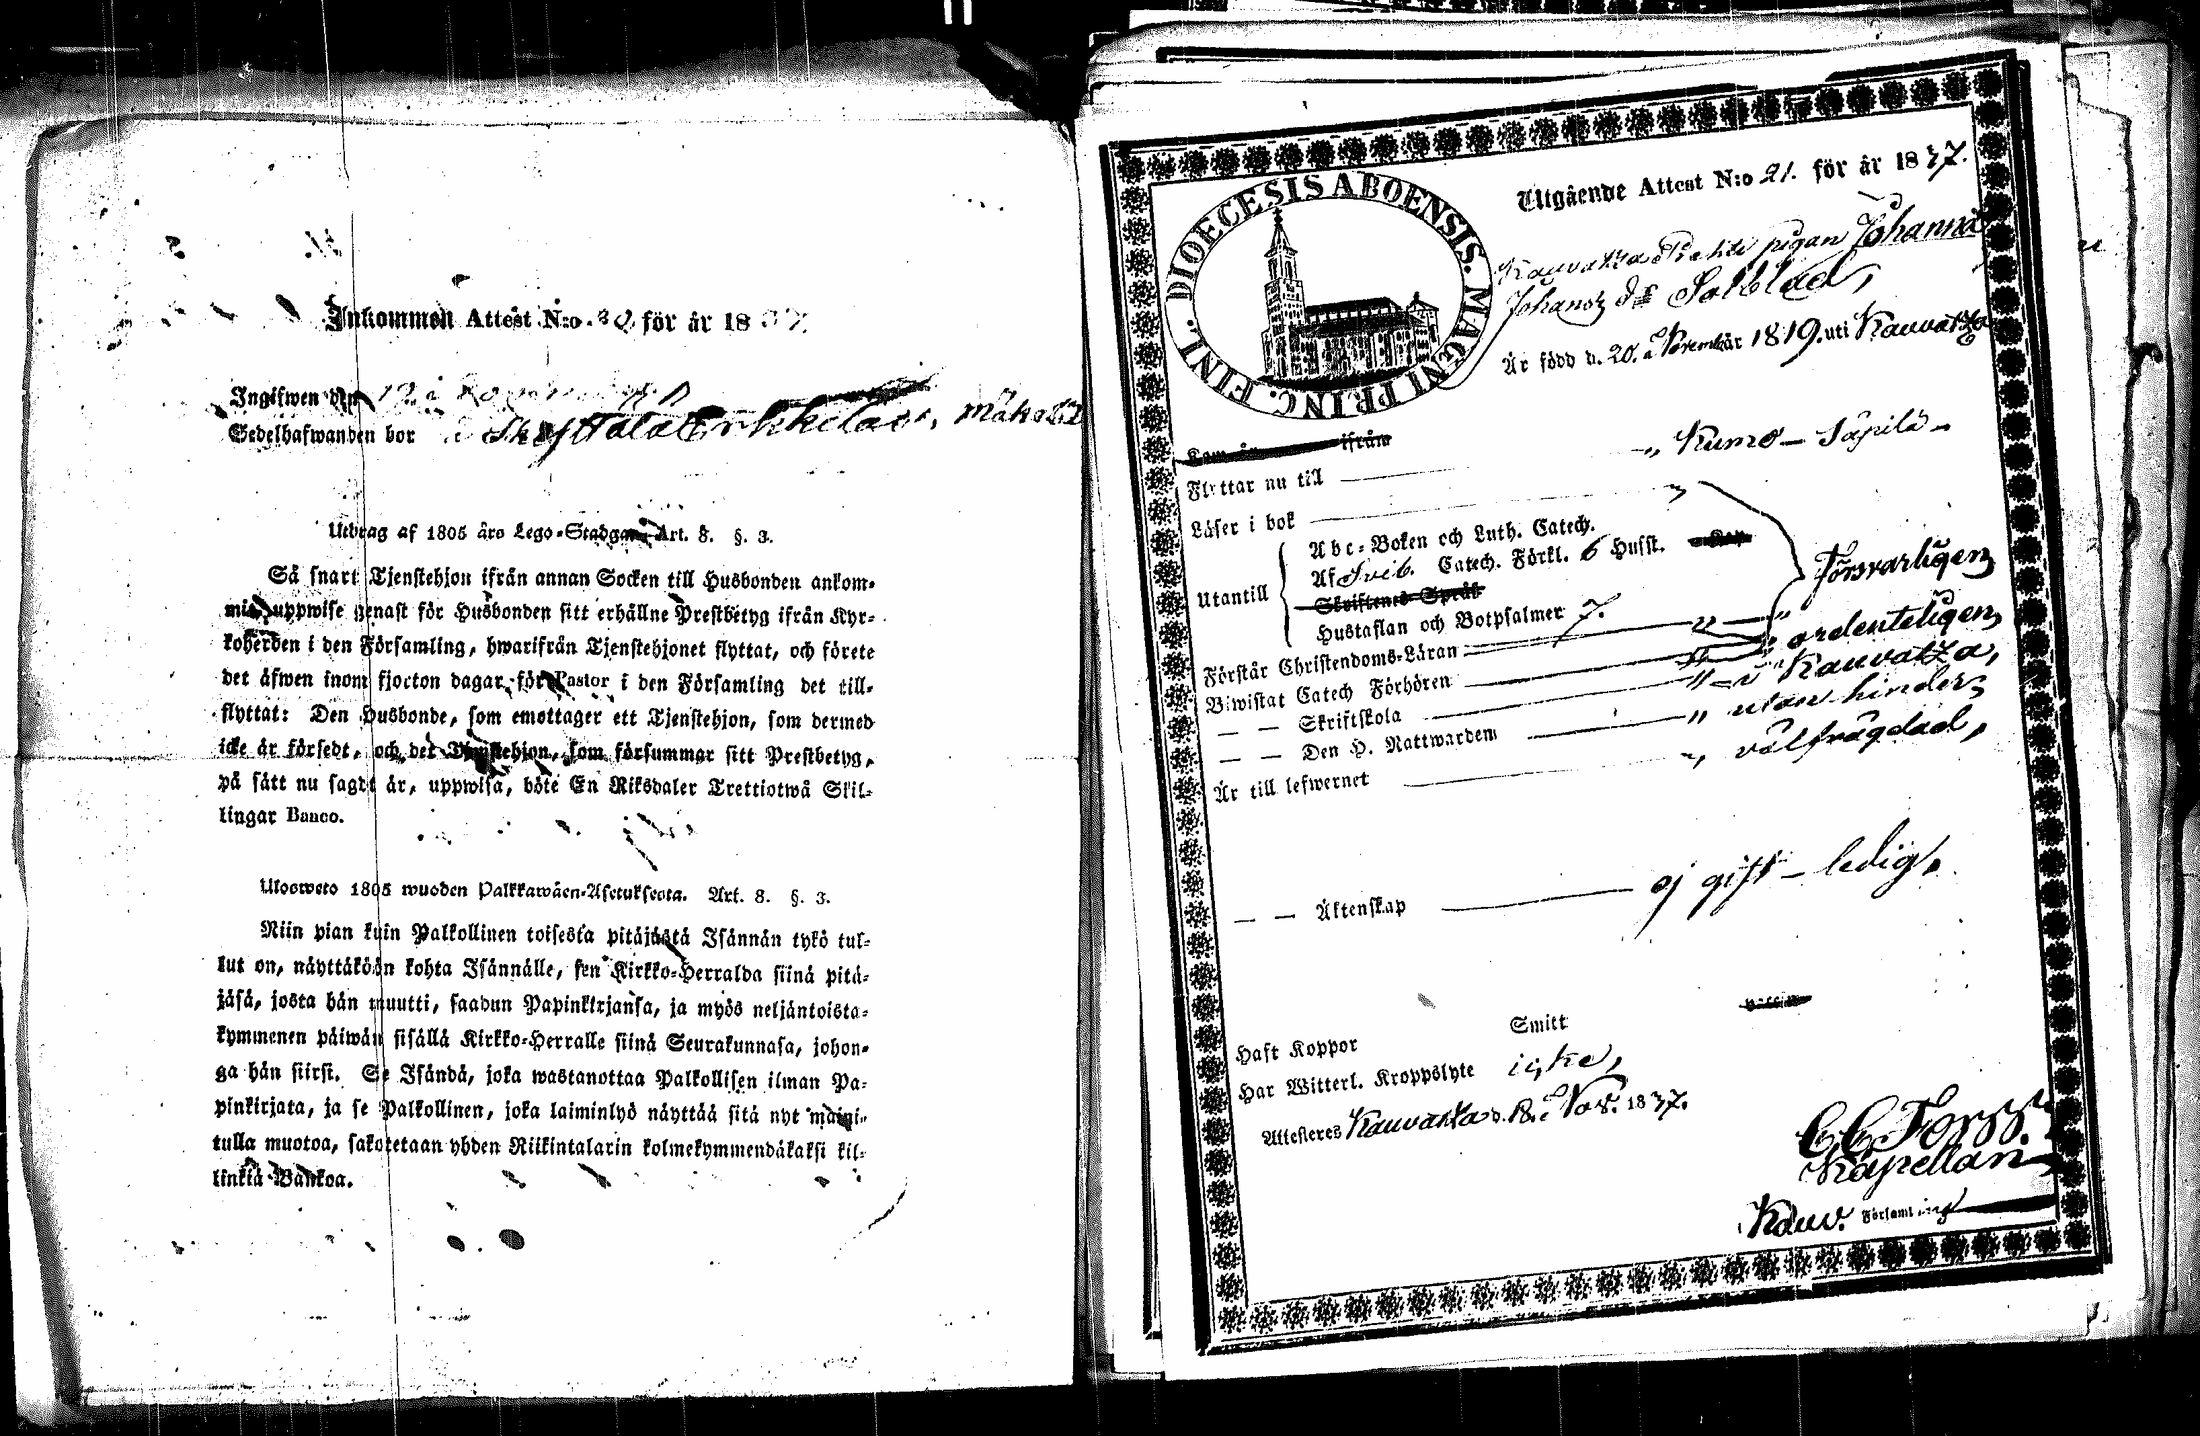 Inkommen Attest N:o 30 för år 1837
Ingifwen den 12
Sedelhafwanden bor i
Utdrag af 1805 års Lego-Stadga Art. 8. §. 3.
Så snart Tjenstehjon ifrån annan Socken till Husbonden ankom-
mit, uppwise genast för Husbonden sitt erhållne Prestbetyg ifrån Kyr-
koherden i den Församling, hwarifrån Tjenstehjonet flyttat, och förete
det äfwen inom fjorton dagar för Pastor i den Församling det till-
flyttat: Den Husbonde, som emottager ett Tjenstehjon, som dermed
icke är försedt, och det Tjenstehjon, som försummar sitt Prestbetyg,
på sätt nu sagdt är, uppwisa, böte En Riksdaler Trettiotwå Skil-
lingar Banco.
Ulosweto 1805 wuoden Palkkawäen-Asetuksesta. Art. 8. §. 3.
Niin pian kuin Palkollinen toisesta pitäjästä Isännän tykö tul-
lut on, näyttäköön kohta Isännälle, sen Kirkko-Herralda siinä pitä-
jäsä, josta hän muutti, saadun Papinkirjansa, ja myös neljäntoista-
kymmenen päiwän sisällä Kirkko-Herralle siinä Seurakunnasa, johon-
ga hän siirsi. Se Isändä, joka wastanottaa Palkollisen ilman Pa-
pinkirjata, ja se Palkollinen, joka laiminlyö näyttää sitä nyt maini-
tulla muotoa, sakotetaan yhden Riikintalarin kolmekymmendäkaksi kil-
linkiä Bankoa.
DIOECESIS ABOENSIS. MAGNI PRINC. FINL.
Utgående Attest N:o 21. för år 1837.
Kauvatza pigan Johanna
Johansd:r Solblad,
Är född d. 20. Novembr 1819. uti Kauvatza
Kom år ifrån
Flyttar nu till — „ Kumo – Säpilä –
Läser i bok
Utantill
Abc-Boken och Luth. Catech.
Af Sveb. Catech. Förkl. 6 Husst.
Skriftenes Språk
Hustaflan och Botpsalmer 7.
Försvarligen
Förstår Christendoms-Läran „
Biwistat Catech Förhören „ ordenteligen,
— — Skriftskola „ – i Kauvatza,
— — Den H. Nattwarden „ utan hinder,
Är till lefwernet „ välfrägdad,
— — Äktenskap ej gift – ledig,
Haft Koppor Smitt
Har Witterl. Kroppslyte icke,
Attesteres Kauvatza d. 8. Nov. 1837.
C C Forss.
Kapellan
Kauv. Församling